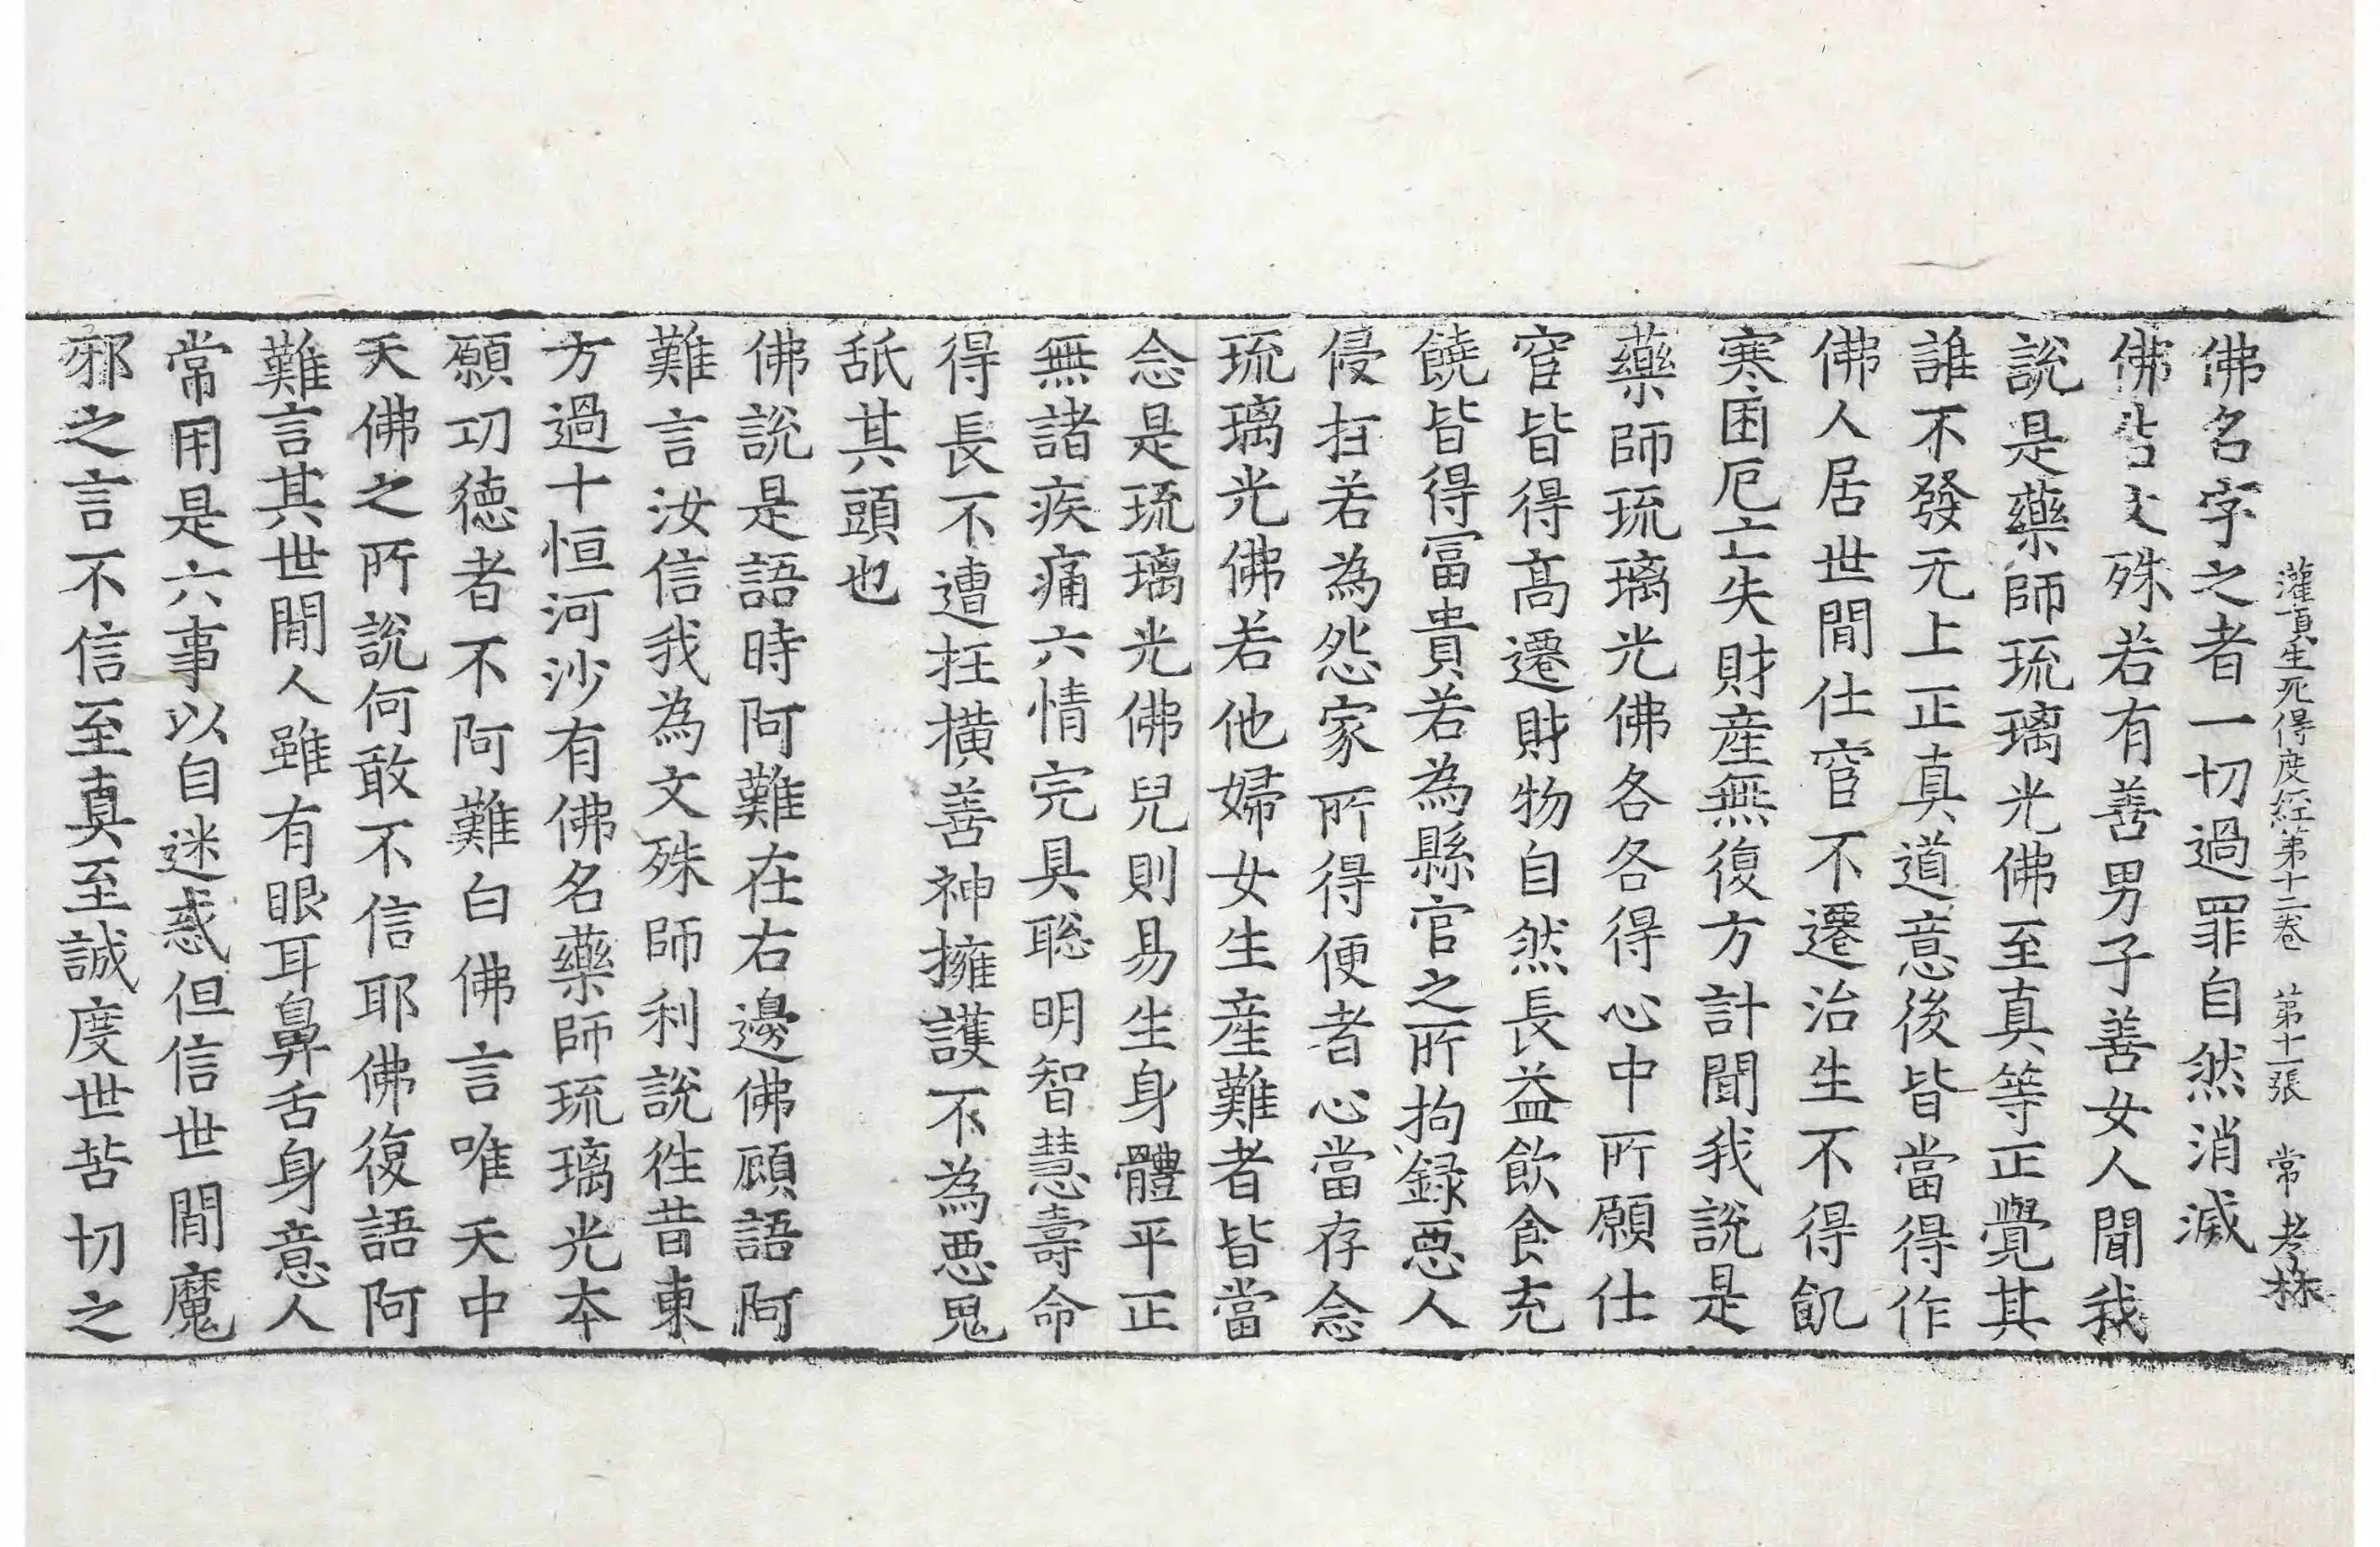 灌頂生死得度經第十二卷　第十一張　常　孝林
佛名字之者一切過罪自然消滅
佛告文殊若有善男子善女人聞我
說是藥師琉璃光佛至真等正覺其
誰不發无上正真道意後皆當得作
佛人居世間仕官不遷治生不得飢
寒困厄亡失財產無復方計聞我說是
藥師琉璃光佛各各得心中所願仕
官皆得高遷財物自然長益飲食充
饒皆得冨貴若為縣官之所拘録惡人
侵抂若為怨家所得便者心當存念
琉璃光佛若他婦女生產難者皆當
念是琉璃光佛兒則易生身體平正
無諸疾痛六情完具聡明智慧壽命
得長不遭抂橫善神擁護不為惡鬼
舐其頭也
佛說是語時阿難在右邊佛顧語阿
難言汝信我為文殊師利說徃昔東
方過十恒河沙有佛名藥師琉璃光本
願功德者不阿難白佛言唯天中
天佛之所說何敢不信耶佛復語阿
難言其世間人雖有眼耳鼻舌身意人
常用是六事以自迷惑但信世間魔
邪之言不信至真至誠度世苦切之